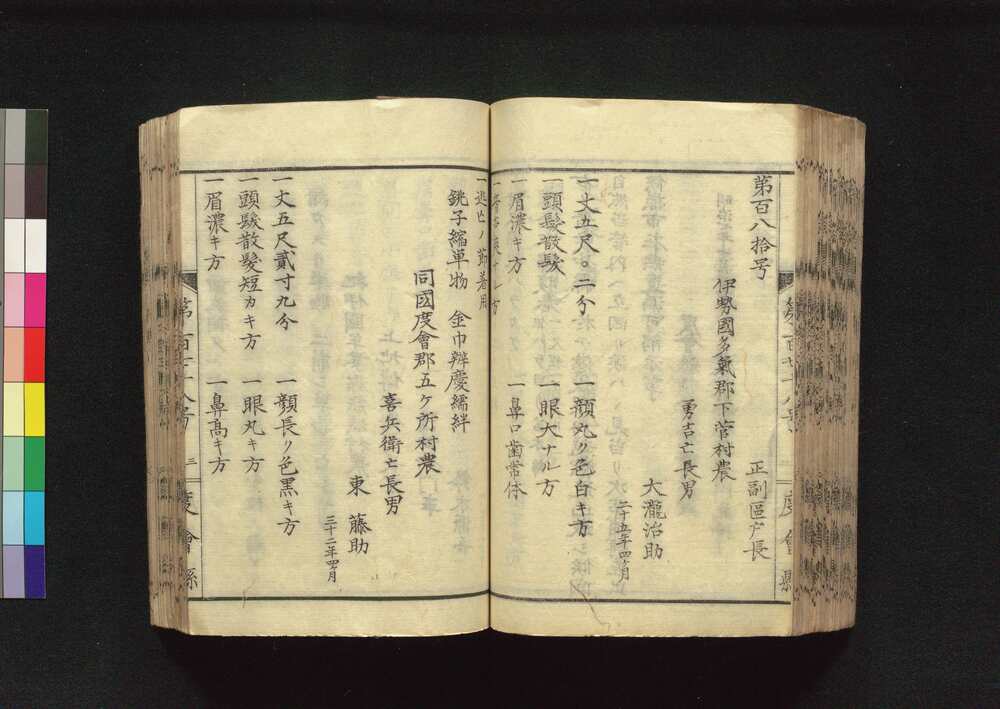 第百八拾号
正副區戸長
伊勢國多氣郡下菅村農
勇吉亡長男
大瀧治助
二十五年四ヶ月
一丈五尺〇二分 一顔丸ク色白キ方
一頭髪散髪 一眼大ナル方
一眉濃キ方 一鼻口歯常体
一逃亡ノ節着用
銚子縮単物 金巾辨慶繻絆
同國度會郡五ケ所村農
喜兵衛亡長男
東 藤助
三十二年四ヶ月
一丈五尺貳寸九分 一顔長ク色黒キ方
一頭髪散髪短カキ方 一眼丸キ方
一眉濃キ方 一鼻高キ方
二 度會縣
度會縣